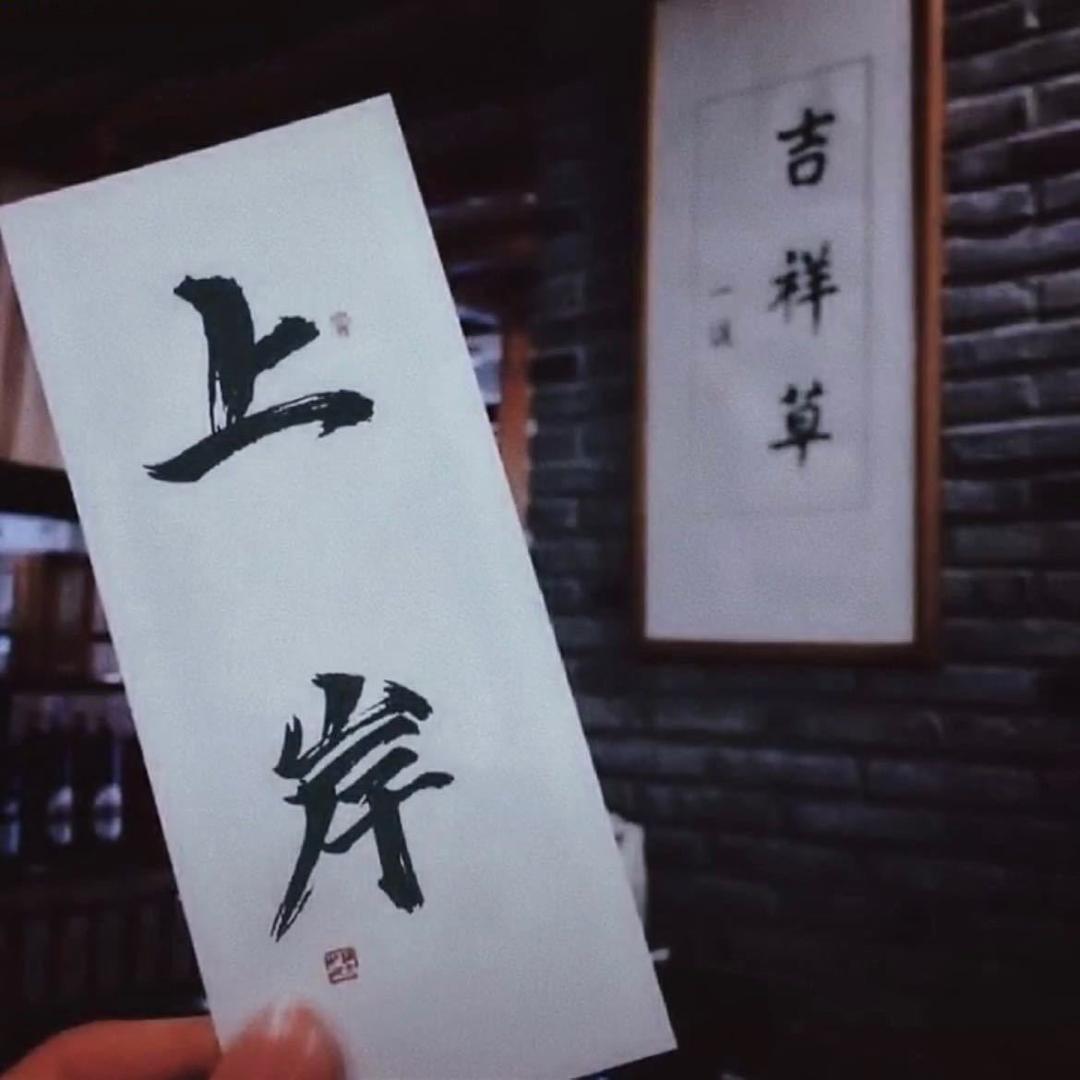 上岸
吉祥草